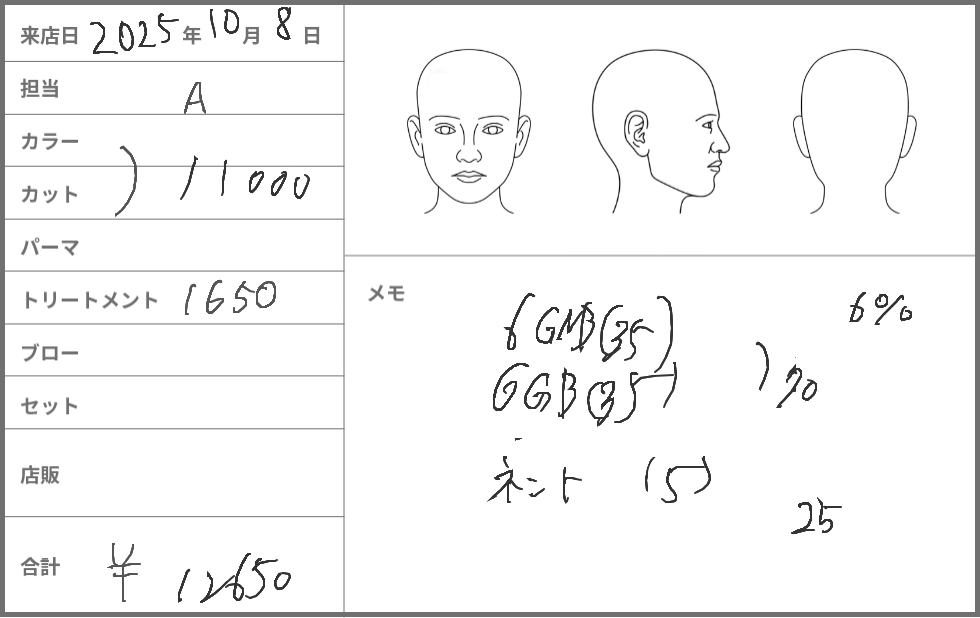 来店日 2025年10月8日
担当 A
カラー
カット ) 11000
パーマ
トリートメント 1650
ブロー
セット
店販
合計 ¥ 12650
メモ
6%
6GMB(35)
6GB(35) ) 70
(5)
25